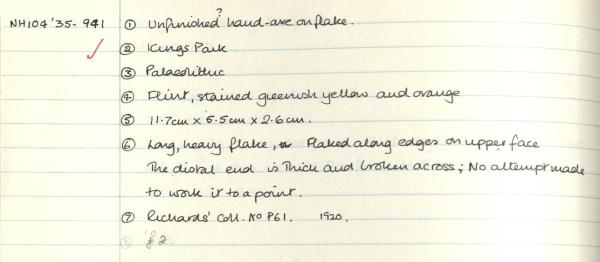 ?
NH104'35-941 ① Unfinished hand-axe on flake.
② Kings Park
③ Palaeolithic
④ Flint, stained greenish yellow and orange
⑤ 11.7cm x 5.5cm x 2.6cm.
⑥ Long, heavy flake, Flaked along edges on upper face
The distal end is thick and broken across; No attempt made
to work it to a point.
⑦ Richards' Coll. No P61. 1920.
⑧ £2